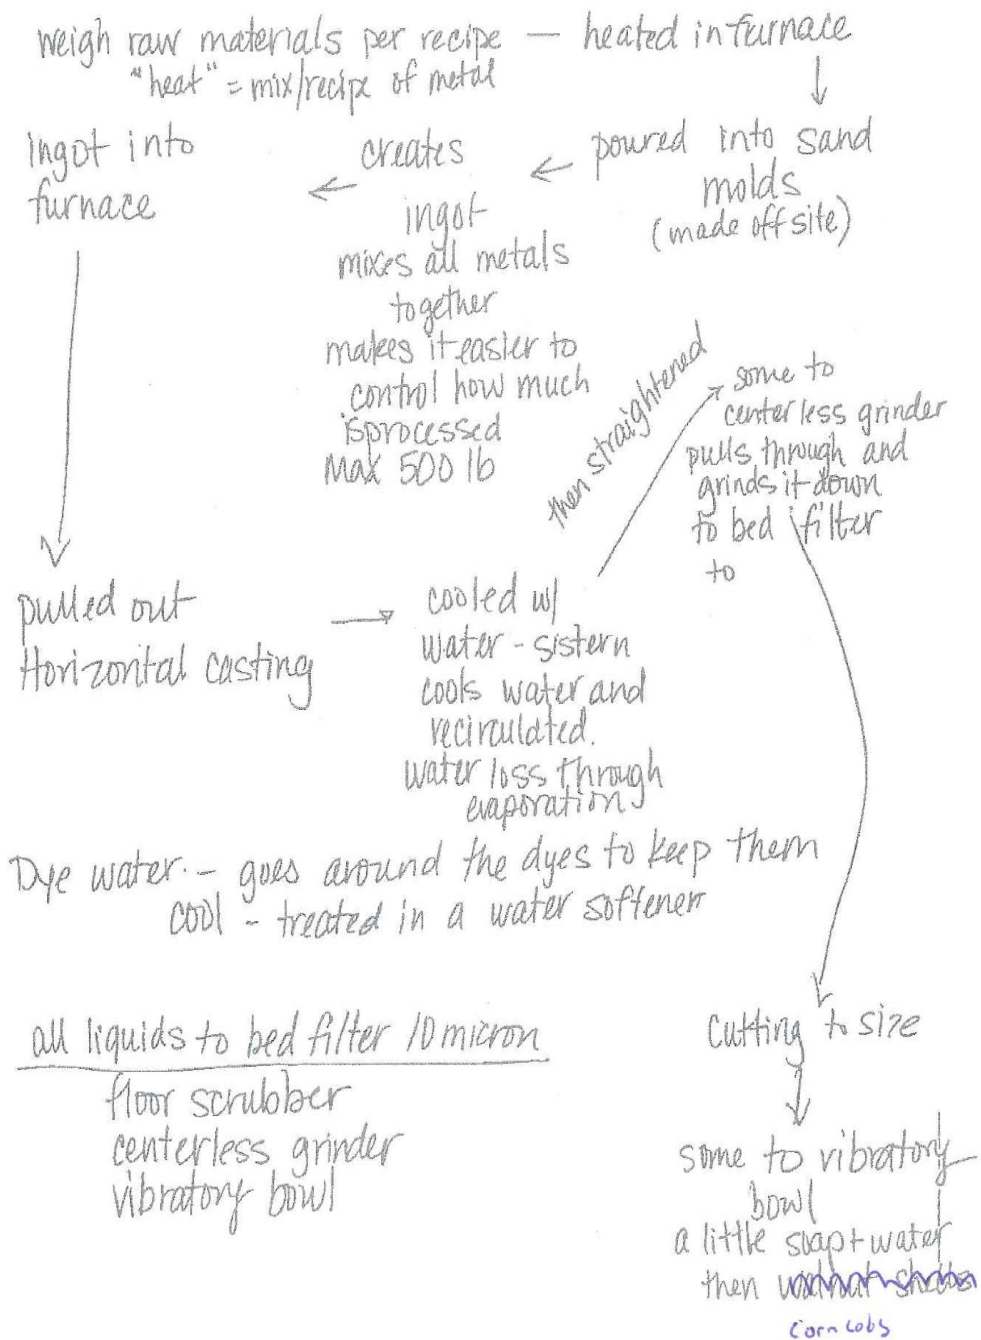 weigh raw materials per recipe — heated in furnace
"heat" = mix/recipe of metal
poured into sand
molds
(made off site)
creates
ingot
mixes all metals
together
makes it easier to
control how much
isprocessed
Max 500 lb
Ingot into
furnace
pulled out
Horizontal casting
cooled w/
water - sistern
cools water and
recirculated.
water loss through
evaporation
then straightened
some to
centerless grinder
pulls through and
grinds it down
to bed filter
to
Dye water - goes around the dyes to keep them
cool - treated in a water softener
cutting to size
some to vibratory
bowl
a little soap + water
then walnut shells
corn cobs
all liquids to bed filter 10 micron
floor scrubber
centerless grinder
vibratory bowl